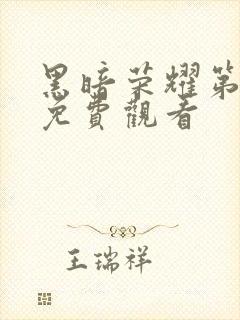 黑暗荣耀第
免費觀看
王瑞祥